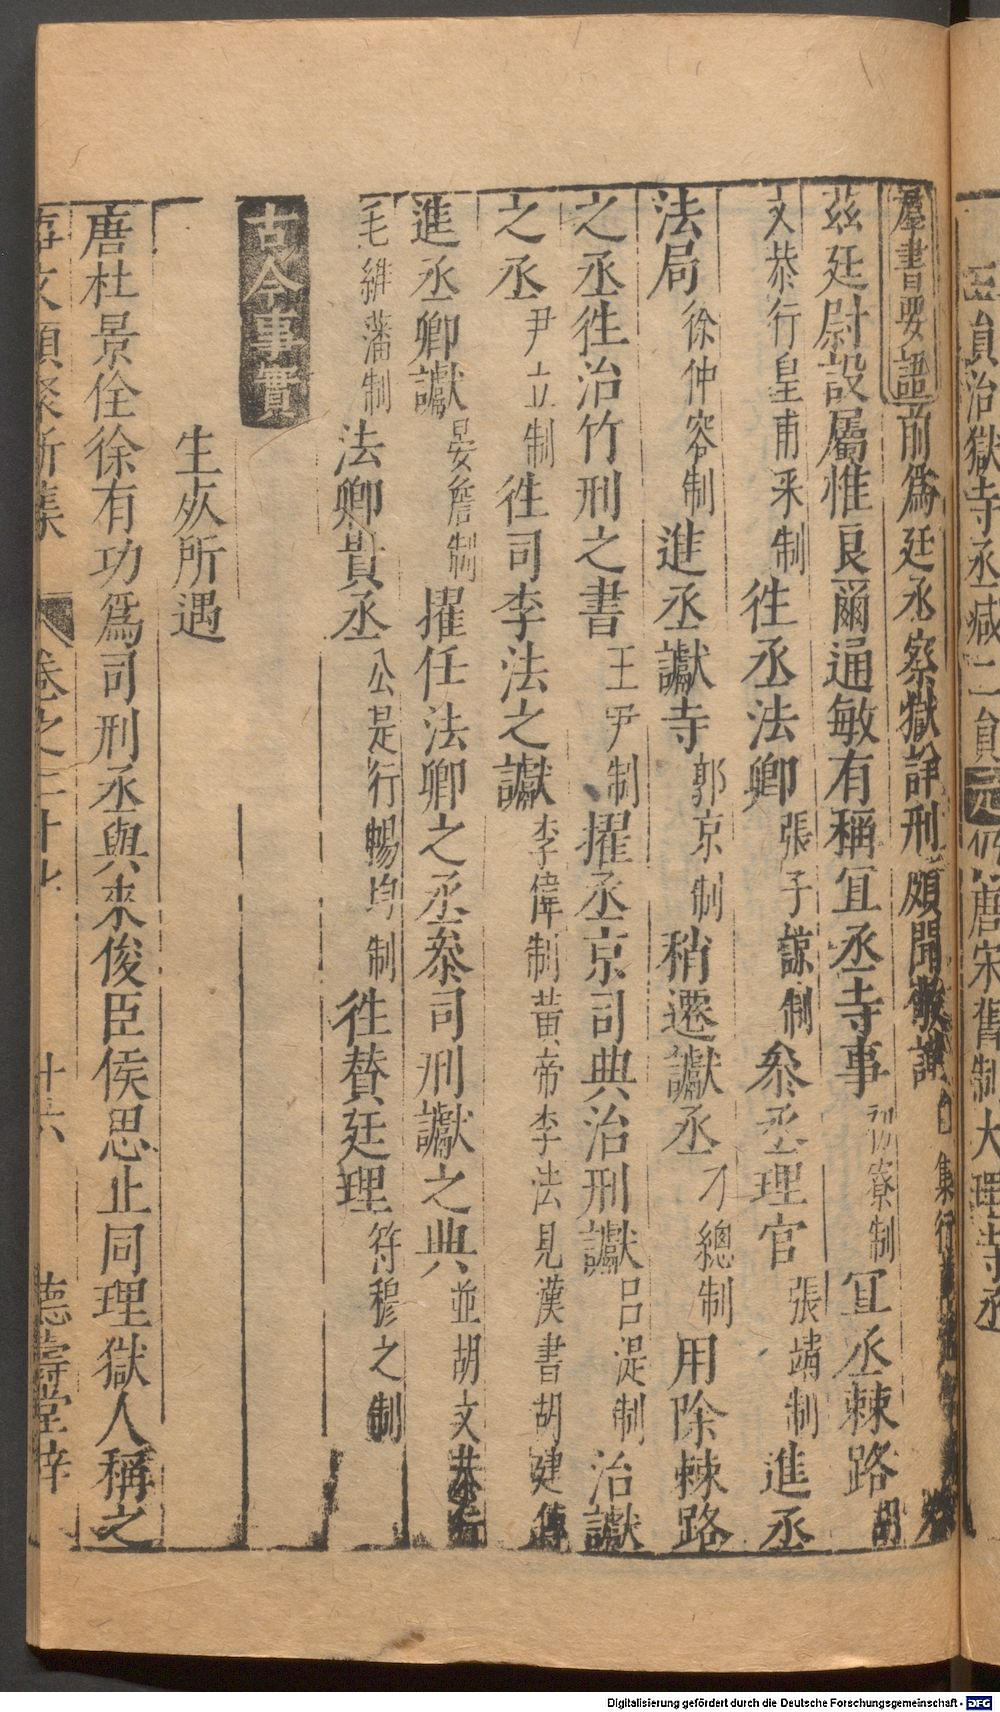 三員治獄寺丞減二員元仍唐宋舊制大理寺丞
羣書要語前爲廷丞察獄詳刑頗聞敬謹白集行
茲廷尉設屬惟良爾通敏有稱冝丞寺事刁寮制冝丞棘路胡
文恭行皇甫釆制徃丞法卿張子諒制叅丞理官張靖制進丞
法局徐仲容制進丞讞寺郭京制稍遷讞丞刁緫制用除棘路
之丞徃治竹刑之書王尹制擢丞京司典治刑讞吕湜制治讞
之丞尹立制徃司李法之讞李偉制黃帝李法見漢書胡建傳
進丞卿讞晏詹制擢任法卿之丞叅司刑讞之典並胡文恭行
毛維藩制法卿貴丞公是行暢均制徃賛廷理符穆之制
古今事實
生死所遇
唐杜景佺徐有功爲司刑丞與來俊臣侯思止同理獄人稱之
事文類聚新集 卷之二十七 十六 德壽堂梓
Digitalisierung gefördert durch die Deutsche Forschungsgemeinschaft - DFG